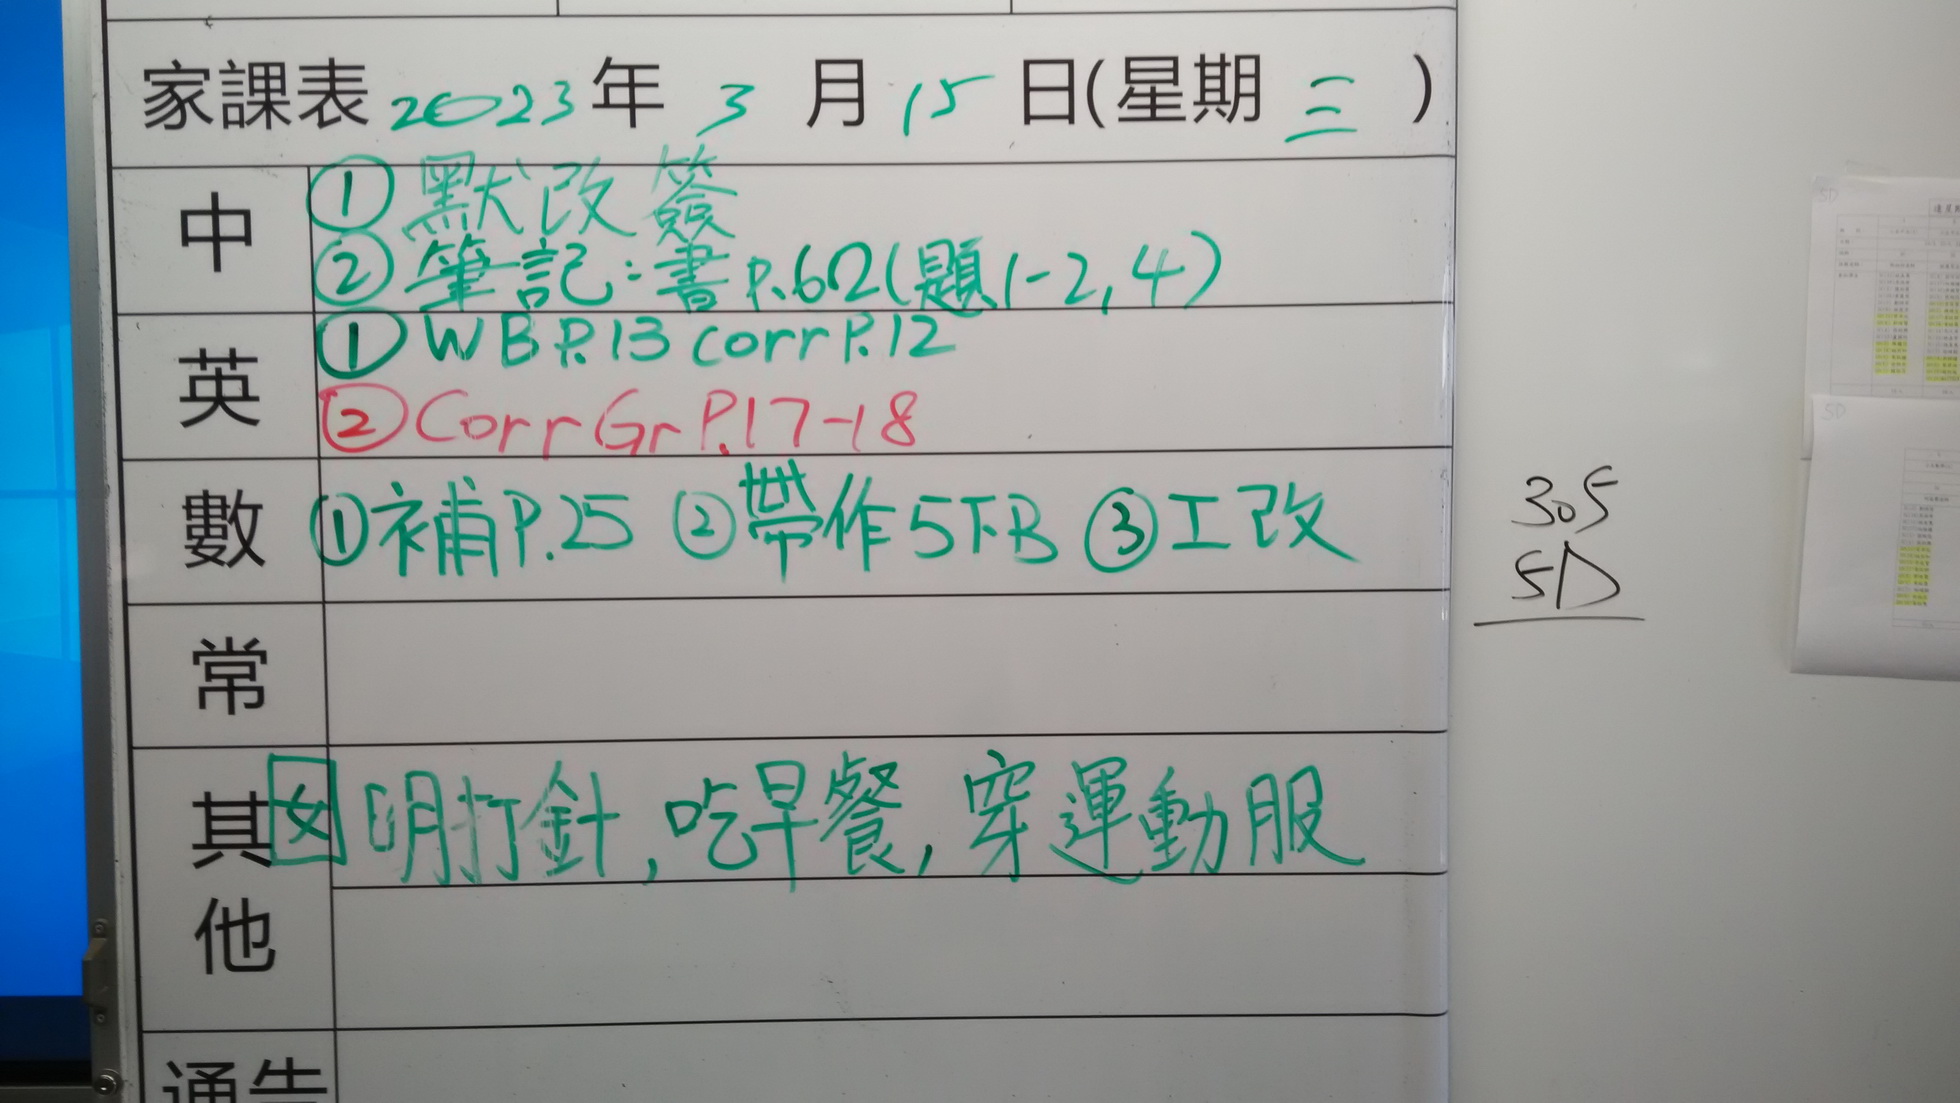 家課表 2023 年 3 月 15 日(星期 三 )
中
① 默改簽
② 筆記:書P.62(題1-2,4)
英
① WB P.13 corr P.12
② Corr Gr P.17-18
數 ①補P.25 ②帶作5下B ③工改
常
305
5D
其他
女 明打針,吃早餐,穿運動服
通告
5D
5D